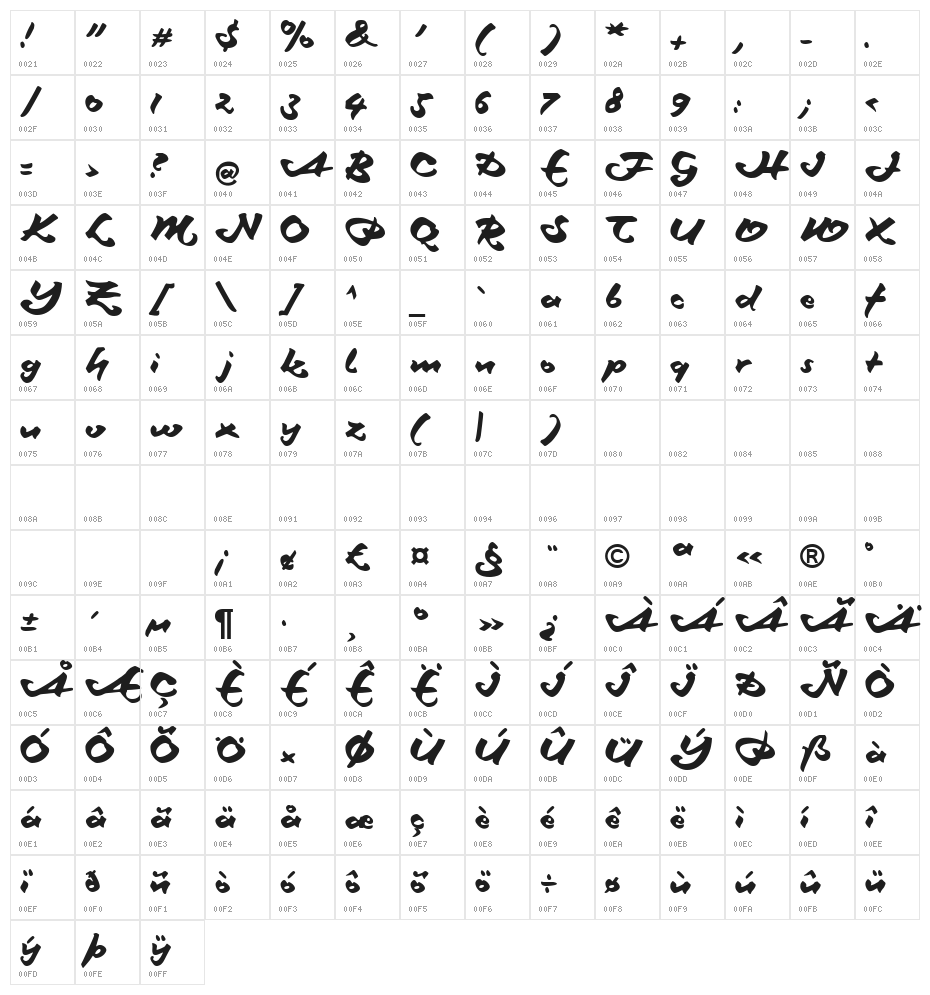 ! " # $ % & ' ( ) * + , - .
0021 0022 0023 0024 0025 0026 0027 0028 0029 002A 002B 002C 002D 002E
/ 0 1 2 3 4 5 6 7 8 9 : ; <
002F 0030 0031 0032 0033 0034 0035 0036 0037 0038 0039 003A 003B 003C
= > ? @ A B C D E F G H I J
003D 003E 003F 0040 0041 0042 0043 0044 0045 0046 0047 0048 0049 004A
K L M N O P Q R S T U V W X
004B 004C 004D 004E 004F 0050 0051 0052 0053 0054 0055 0056 0057 0058
Y Z [ \ ] ^ _ ` a b c d e f
0059 005A 005B 005C 005D 005E 005F 0060 0061 0062 0063 0064 0065 0066
g h i j k l m n o p q r s t
0067 0068 0069 006A 006B 006C 006D 006E 006F 0070 0071 0072 0073 0074
u v w x y z ( | )
0075 0076 0077 0078 0079 007A 007B 007C 007D 0080 0082 0084 0085 0088
008A 008B 008C 008E 0091 0092 0093 0094 0096 0097 0098 0099 009A 009B
¡ ¢ £ ¤ § ¨ © ª « ® °
009C 009E 009F 00A1 00A2 00A3 00A4 00A7 00A8 00A9 00AA 00AB 00AE 00B0
± ´ µ ¶ · ¸ º » ¿ À Á Â Ã Ä
00B1 00B4 00B5 00B6 00B7 00B8 00BA 00BB 00BF 00C0 00C1 00C2 00C3 00C4
Å Æ Ç È É Ê Ë Ì Í Î Ï Ð Ñ Ò
00C5 00C6 00C7 00C8 00C9 00CA 00CB 00CC 00CD 00CE 00CF 00D0 00D1 00D2
Ó Ô Õ Ö × Ø Ù Ú Û Ü Ý Þ ß à
00D3 00D4 00D5 00D6 00D7 00D8 00D9 00DA 00DB 00DC 00DD 00DE 00DF 00E0
á â ã ä å æ ç è é ê ë ì í î
00E1 00E2 00E3 00E4 00E5 00E6 00E7 00E8 00E9 00EA 00EB 00EC 00ED 00EE
ï ð ñ ò ó ô õ ö ÷ ø ù ú û ü
00EF 00F0 00F1 00F2 00F3 00F4 00F5 00F6 00F7 00F8 00F9 00FA 00FB 00FC
ý þ ÿ
00FD 00FE 00FF